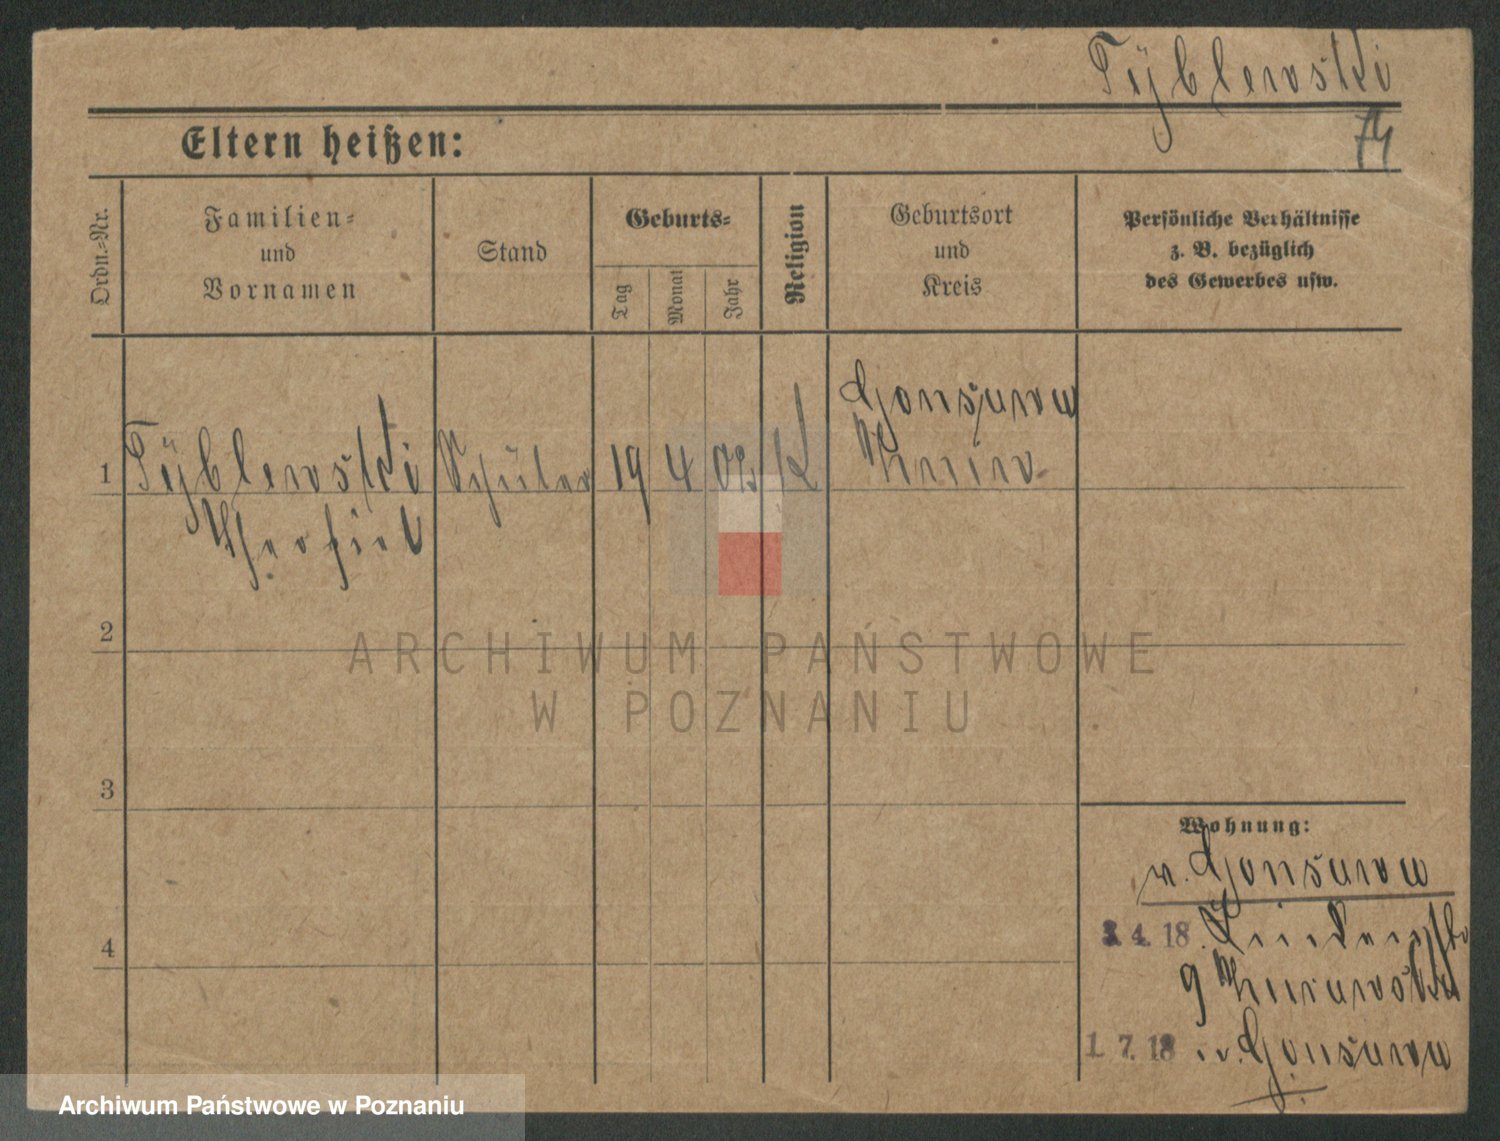 Tÿblewski
74
Eltern heißen:
Ordn.-Nr.
Familien-
und
Vornamen
Stand
Geburts-
Tag
Monat
Jahr
Religion
Geburtsort
und
Kreis
Persönliche Verhältnisse
z. B. bezüglich
des Gewerbes usw.
1
Tÿblewski
Theofiel
Schüler
19
4
02
K
Gonsawa
Znin
2
ARCHIWUM PAŃSTWOWE
W POZNANIU
3
Wohnung:
v. Gonsawa
3. 4. 18
9
4
1. 7. 18 n. Gonsawa
Archiwum Państwowe w Poznaniu